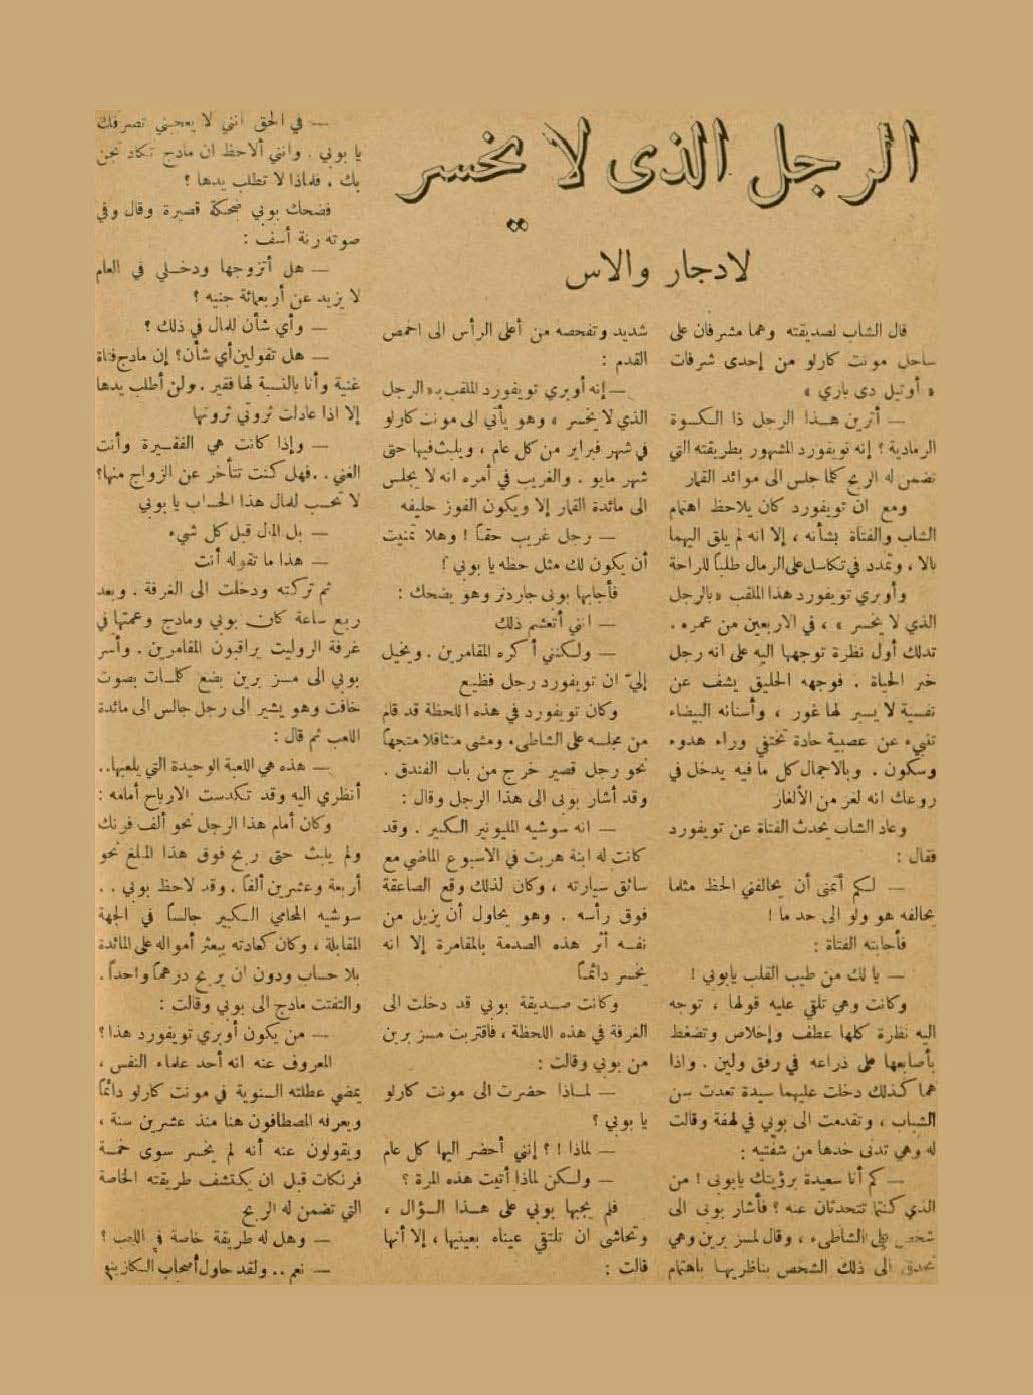 الرجل الذى لا يخسر
لادجار والاس
قال الشاب لصديقته وهما مشرفان على
ساحل مونت كارلو من إحدى شرفات
« أوتيل دى باري »
— أترين هذا الرجل ذا الكسوة
الرمادية ؟ إنه تويفورد المشهور بطريقته التي
تضمن له الربح كلما جلس الى موائد القمار
ومع ان تويفورد كان يلاحظ اهتمام
الشاب والفتاة بشأنه ، إلا انه لم يلق اليهما
بالا ، وتمدد في تكاسل على الرمال طلباً للراحة
وأوبري تويفورد هذا الملقب « بالرجل
الذي لا يخسر » ، في الاربعين من عمره .
تدلك أول نظرة توجهها اليه على انه رجل
خبر الحياة . فوجهه الحليق يشف عن
نفسية لا يسبر لها غور ، وأسنانه البيضاء
تنبيء عن عصبية حادة تختفي وراء هدوء
وسكون . وبالاجمال كل ما فيه يدخل في
روعك انه لغز من الألغاز
وعاد الشاب يحدث الفتاة عن تويفورد
فقال :
— لكم أتمنى أن يحالفني الحظ مثلما
يحالفه هو ولو الى حد ما !
فأجابته الفتاة :
— يا لك من طيب القلب يابوبي !
وكانت وهي تلقي عليه قولها ، توجه
اليه نظرة كلها عطف وإخلاص وتضغط
بأصابعها على ذراعه في رفق ولين . واذا
هما كذلك دخلت عليهما سيدة تعدت سن
الشباب ، وتقدمت الى بوبي في لهفة وقالت
له وهي تدنى خدها من شفتيه :
— كم أنا سعيدة برؤيتك يابوبى ! من
الذي كنتما تتحدثان عنه ؟ فأشار بوبى الى
شخص على الشاطىء ، وقال لمسز برين وهي
تحدق الى ذلك الشخص بناظريها باهتمام
شديد وتفحصه من أعلى الرأس الى اخمص
القدم :
— إنه أوبري تويفورد الملقب بـ « الرجل
الذي لا يخسر » وهو يأتي الى مونت كارلو
في شهر فبراير من كل عام ، ويلبث فيها حتى
شهر مايو . والغريب في أمره انه لا يجلس
الى مائدة القمار إلا ويكون الفوز حليفه
— رجل غريب حقاً ! وهلا تمنيت
أن يكون لك مثل حظه يا بوبي ؟!
فأجابها بوبى جاردنر وهو يضحك :
— انني أتعشم ذلك
— ولكنني أكره المقامرين . ويخيل
إليّ ان تويفورد رجل فظيع
وكان تويفورد في هذه اللحظة قد قام
من مجلسه على الشاطىء ومشى متثاقلا متجهاً
نحو رجل قصير خرج من باب الفندق .
وقد أشار بوبى الى هذا الرجل وقال :
— انه سوشيه المليونير الكبير . وقد
كانت له ابنة هربت في الاسبوع الماضي مع
سائق سيارته ، وكان لذلك وقع الصاعقة
فوق رأسه . وهو يحاول أن يزيل من
نفسه أثر هذه الصدمة بالمقامرة إلا انه
يخسر دائماً
وكانت صديقة بوبي قد دخلت الى
الغرفة في هذه اللحظة ، فاقتربت مسز برين
من بوبي وقالت :
— لماذا حضرت الى مونت كارلو
يا بوبي ؟
— لماذا ! ؟ إنني أحضر اليها كل عام
— ولكن لماذا أتيت هذه المرة ؟
فلم يجبها بوبي على هذا السؤال ،
وتحاشى ان تلتقي عيناه بعينيها ، إلا أنها
قالت :
— في الحق انني لا يعجبني تصرفك
يا بوبي . وانني ألاحظ ان مادج تكاد تجن
بك . فلماذا لا تطلب يدها ؟
فضحك بوبي ضحكة قصيرة وقال وفي
صوته رنة أسف :
— هل أتزوجها ودخلي في العام
لا يزيد عن أربعمائة جنيه ؟
— وأي شأن للمال في ذلك ؟
— هل تقولين أي شأن ؟ إن مادج فتاة
غنية وأنا بالنسبة لها فقير . ولن أطلب يدها
إلا اذا عادلت ثروتي ثروتها
— وإذا كانت هي الفقيرة وأنت
الغني .. فهل كنت تتأخر عن الزواج منها ؟
لا تحسب للمال هذا الحساب يا بوبي
— بل المال قبل كل شيء
— هذا ما تقوله أنت
ثم تركته ودخلت الى الغرفة . وبعد
ربع ساعة كان بوبي ومادج وعمتها في
غرفة الروليت يراقبون المقامرين . وأسر
بوبي الى مسز برين بضع كلمات بصوت
خافت وهو يشير الى رجل جالس الى مائدة
اللعب ثم قال :
— هذه هي اللعبة الوحيدة التي يلعبها..
أنظري اليه وقد تكدست الارباح أمامه :
وكان أمام هذا الرجل نحو ألف فرنك
ولم يلبث حتى ربح فوق هذا المبلغ نحو
أربعة وعشرين ألفاً . وقد لاحظ بوبي . .
سوشيه المحامي الكبير جالساً في الجهة
المقابلة ، وكان كعادته يبعثر أمواله على المائدة
بلا حساب ودون ان يربح درهماً واحداً .
والتفتت مادج الى بوبي وقالت :
— من يكون أوبري تويفورد هذا ؟
المعروف عنه انه أحد علماء النفس ،
يمضي عطلته السنوية في مونت كارلو دائماً
ويعرفه المصطافون هنا منذ عشرين سنة ،
ويقولون عنه أنه لم يخسر سوى خمسة
فرنكات قبل ان يكتشف طريقته الخاصة
التي تضمن له الربح
— وهل له طريقة خاصة في اللعب ؟
— نعم .. ولقد حاول أصحاب الكازينو